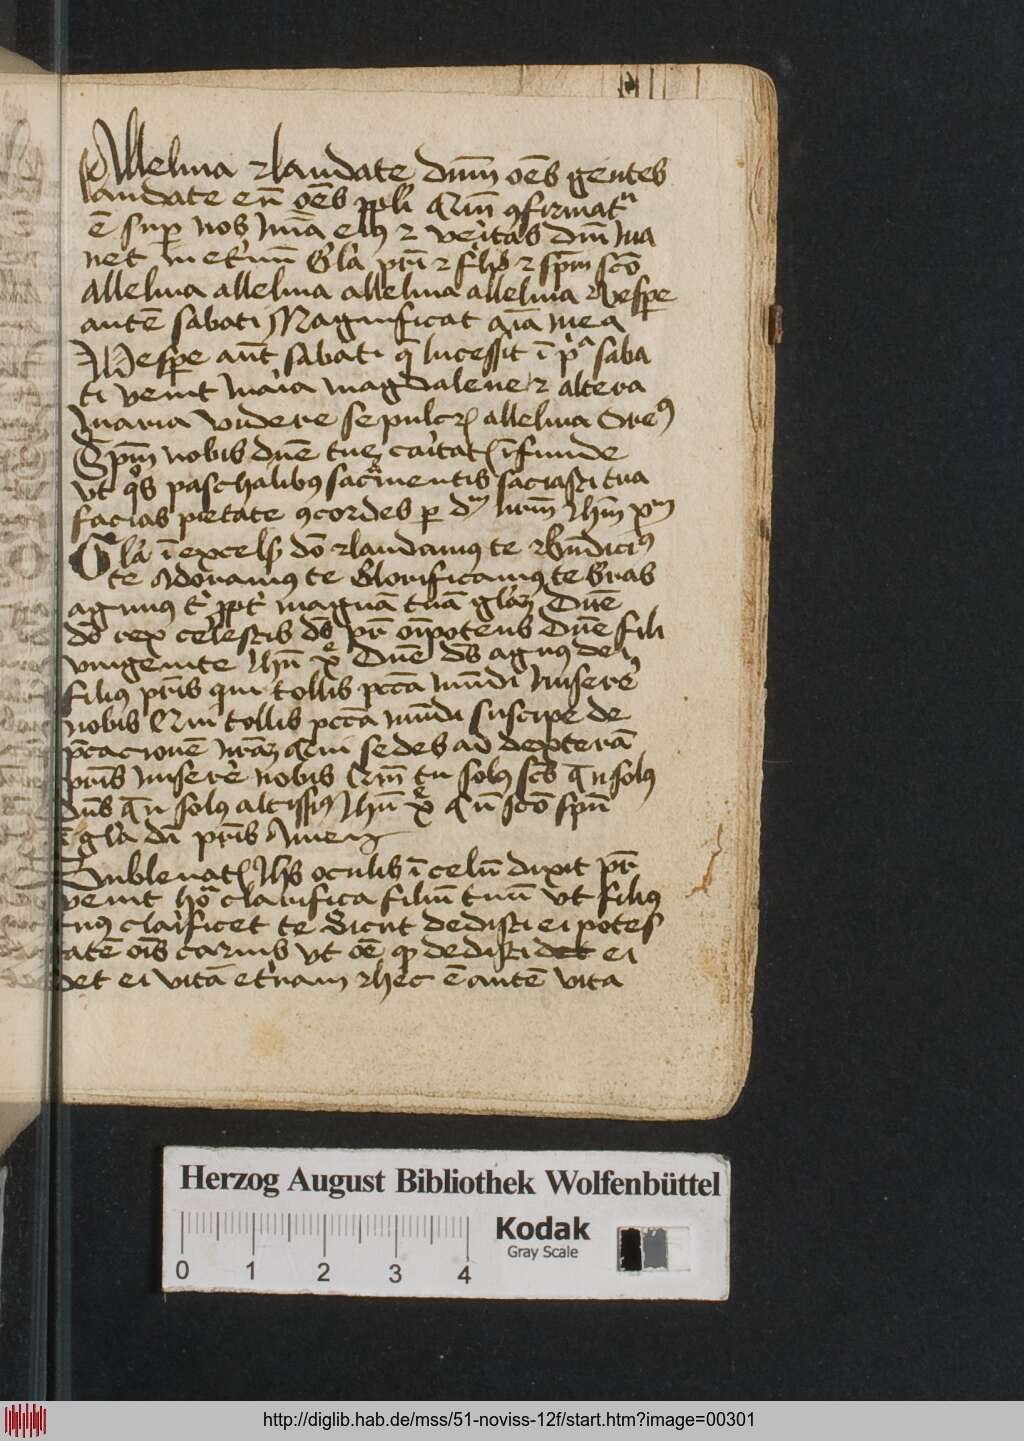 Alleluia ⁊ laudate dn̄m oēs gentes
laudate eū oēs ppl̄i Qm̄ ꝯfirmatᵘ
ē suꝑ nos mīa eiꝰ ⁊ veritas dn̄i ma
net in et̓nū Gl̄a pr̄i ⁊ fil̓ ⁊ spm̄ scō
alleluia alleluia alleluia alleluia ⁊ Vespe
autē sabati Magnificat aīa mea
Vespe aūt sabati q̄ lucessit ī p̓ᵃ saba
ti venit maria magdalene ⁊ altera
maria videre sepulcꝝ alleluia Oremꝰ
Spm̄ nobis dn̄e tue caritatꝭ īfunde
vt qͦs paschalibꝰ sacͣmentis saciasti tua
facias pietate ꝯcordes ꝑ dᵐ nr̄m ihm̄ xᵐ
Gl̄a ī excelsꝭ dō ⁊ laudamꝰ te ⁊ Bn̄dicimꝰ
te Adoramꝰ te Glorificamꝰ te Gr̄as
agimus t̓ ꝓpt̓ magnā tuā gl̄aꝫ Dn̄e
dē rex celestis ds̄ pr̄ oīpotens Dn̄e fili
vnigenite ihū xͤ Dn̄e ds̄ agnꝰ dei
filiꝰ pr̄is qui tollis pctā mūdi miserē
nobis Qui tollis pctā mūdi suscipe de
p̄cacionē nr̄aꝫ Qui sedes ad dexterā
pr̄is miserē nobis Qm̄ tu solꝰ scs̄ q̄ u solꝰ
dn̄s q̄ u solꝰ altissiꝰ ihū xͤ Cū scō spū
ī gl̄a dī pr̄is Amen
Subleuatꝭ ihs̄ oculis ī celū dixit pr̄
venit hoͣ clarifica filiū tuū vt filiꝰ
tuꝰ clarificet te Sicut dedisti ei potes
tatē oīs carnis vt oē ꝙ dedisti det ei
det ei vitā et̓nam ⁊ hec ē autē vita
Herzog August Bibliothek Wolfenbüttel
Kodak
Gray Scale
0 1 2 3 4
http://diglib.hab.de/mss/51-noviss-12f/start.htm?image=00301